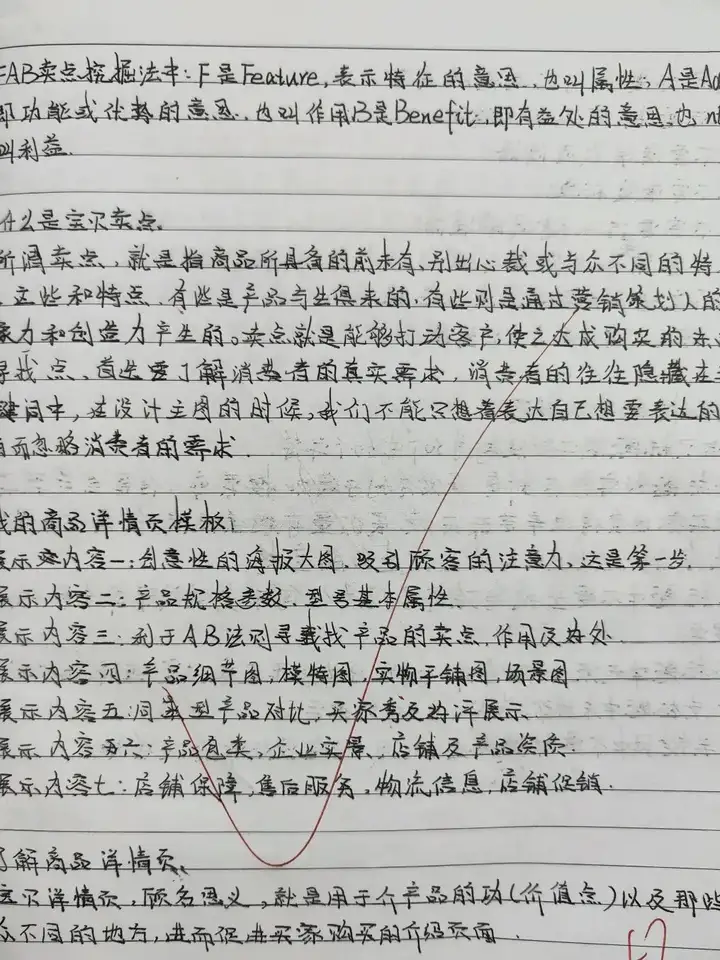 FAB卖点挖掘法中：F是Feature，表示特征的意思，也叫属性；A是Ad
即功能或优势的意思，也叫作用B是Benefit，即有益处的意思，也
叫利益．
什么是宝贝卖点．
所谓卖点，就是指商品所具备的前未有、别出心裁或与众不同的特
这些和特点，有些是产品与生俱来的，有些则是通过营销策划人的
象力和创造力产生的。卖点就是能够打动客户，使之达成购买的
寻找点，首先要了解消费者的真实需求，消费者的往往隐藏在
键词中，在设计主图的时候，我们不能只想着表达自己想要表达的
而忽略消费者的需求．
我的商品详情页模板：
展示内容一：创意性的海报大图，吸引顾客的注意力，这是第一步．
展示内容二：产品规格参数、型号基本属性．
展示内容三：利于AB法则寻找产品的卖点，作用及好处
展示内容四：产品细节图，模特图，实物平铺图，场景图．
展示内容五：同类型产品对比，买家秀及好评展示．
展示内容六：产品包类，企业实景，店铺及产品资质．
展示内容七：店铺保障，售后服务，物流信息，店铺促销．
了解商品详情页．
宝贝详情页，顾名思义，就是用于介产品的功(价值点)以及那些
众不同的地方，进而促进买家购买的介绍页面．